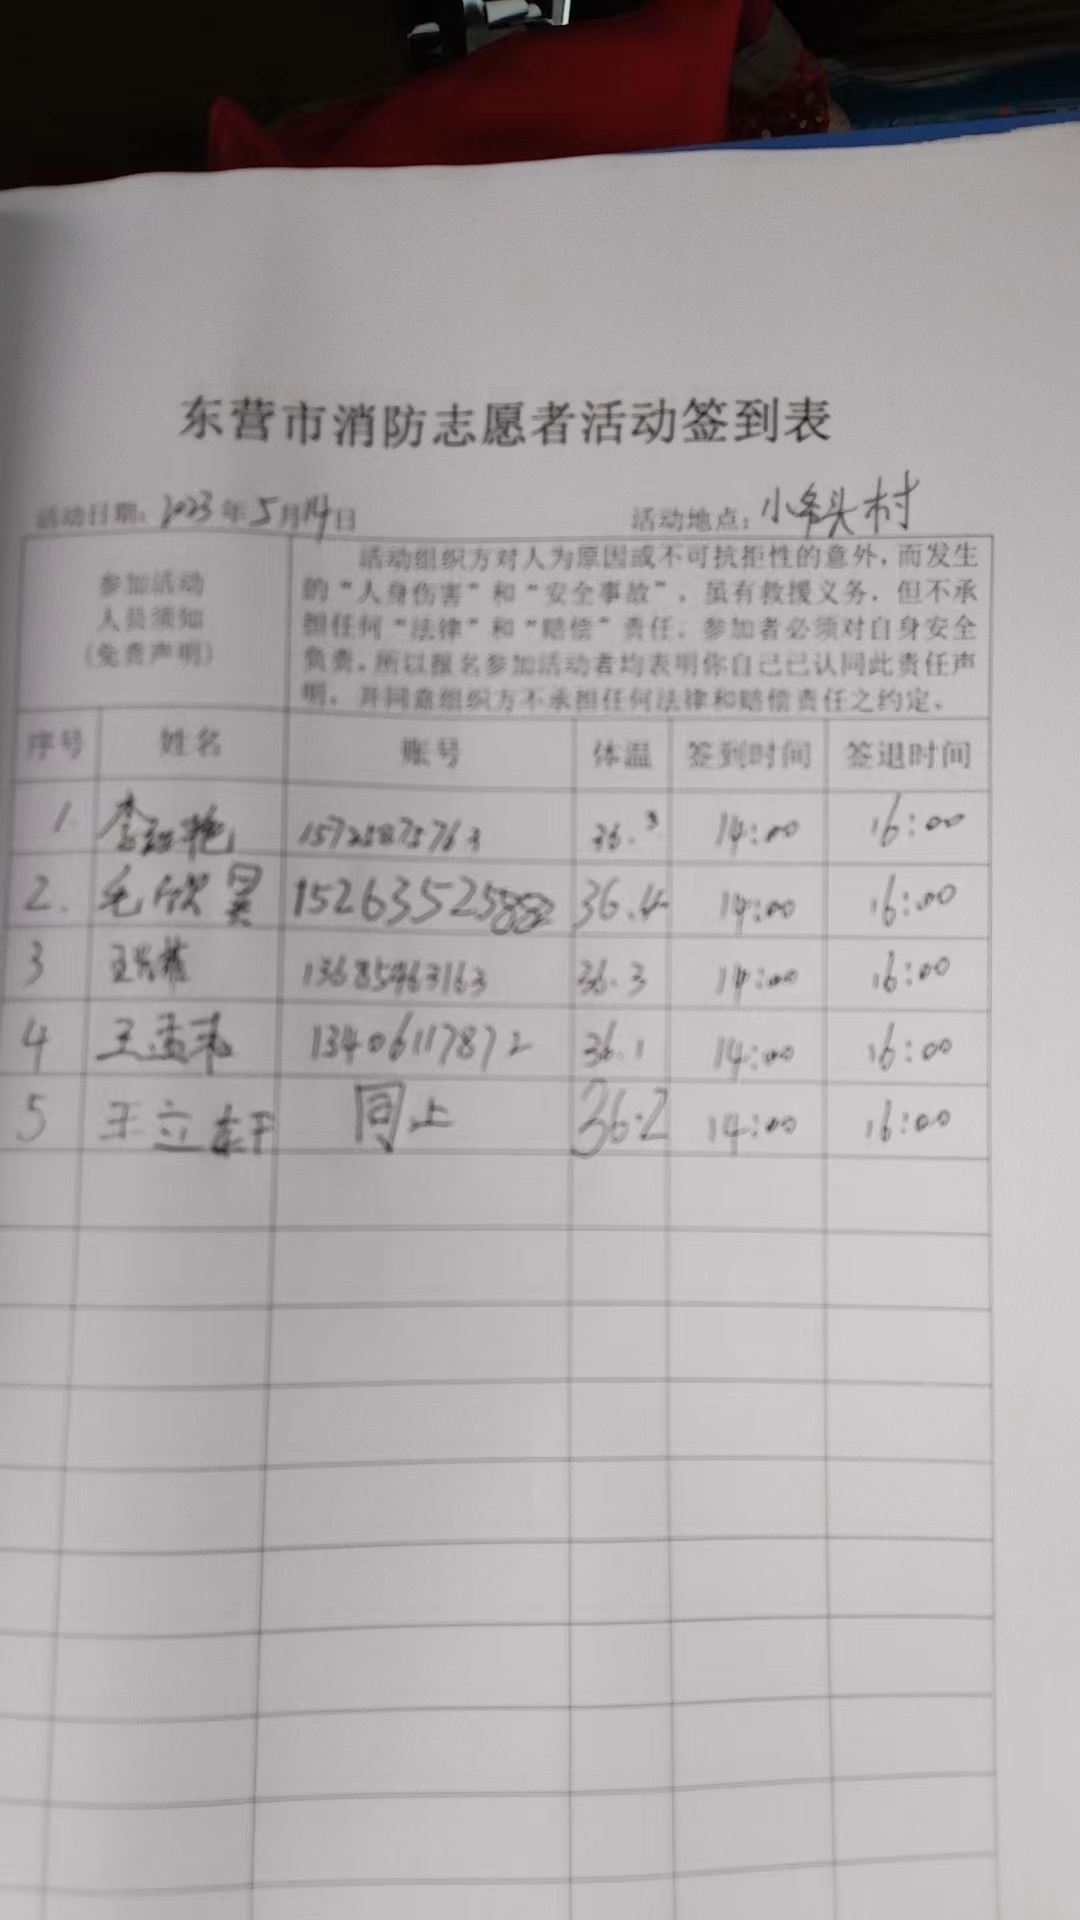 东营市消防志愿者活动签到表
活动日期：2023年5月14日 活动地点：小 头村
参加活动
人员须知
（免责声明）
活动组织方对人为原因或不可抗拒性的意外，而发生
的“人身伤害”和“安全事故”，虽有救援义务，但不承
担任何“法律”和“赔偿”责任。参加者必须对自身安全
负责。所以报名参加活动者均表明你自己已认同此责任声
明。并同意组织方不承担任何法律和赔偿责任之约定。
序号 姓名 账号 体温 签到时间 签退时间
1. 李 艳 15725875763 36.3 14:00 16:00
2. 毛欣昊 15263525882 36.4 14:00 16:00
3 王 13685463163 36.3 14:00 16:00
4 王孟 13406117872 36.1 14:00 16:00
5 王立轩 同上 36.2 14:00 16:00